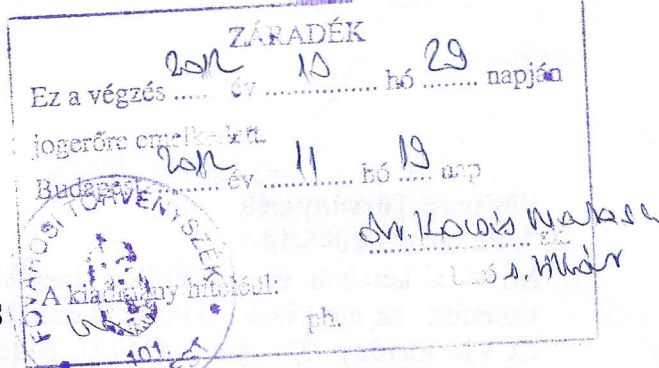 ZÁRADÉK
Ez a végzés 2012 év 10 hó 29 napján
jogerőre emelkedett.
Budapest, 2012 év 11 hó 19 nap
dr. Kovács
A kiadmány hiteléül:
ph.
FŐVÁROSI TÖRVÉNYSZÉK
101